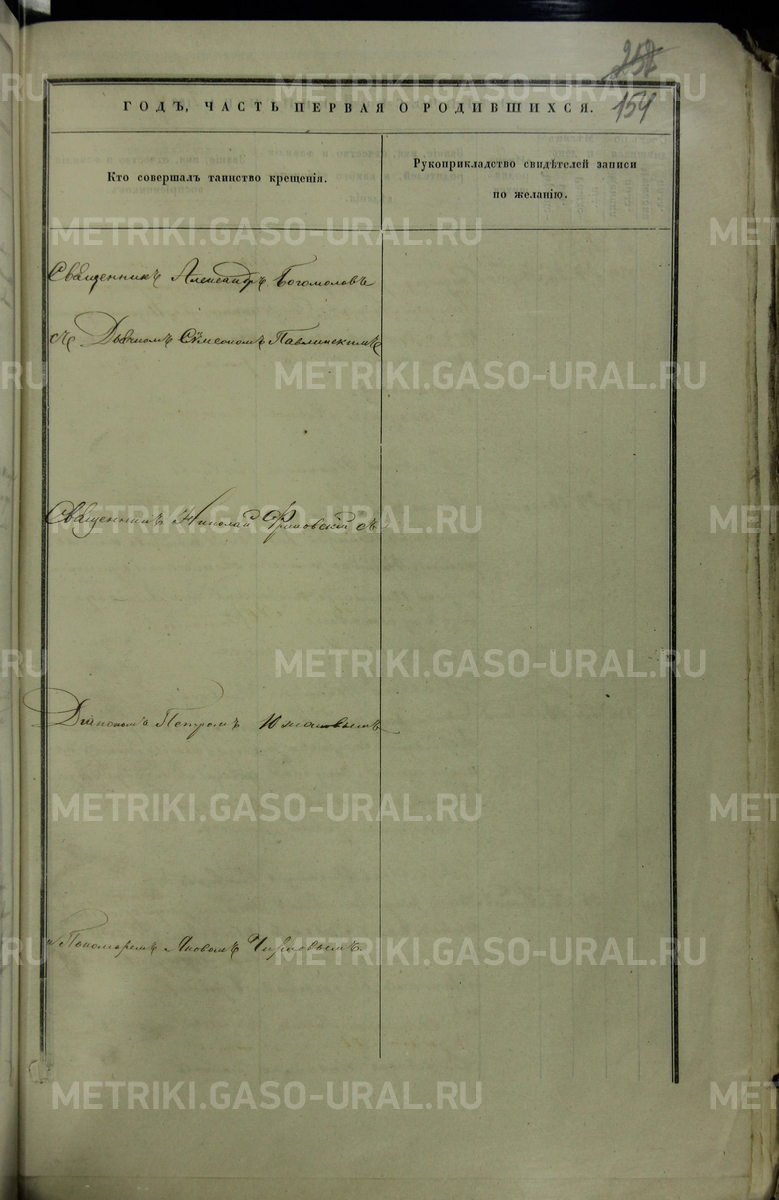 252
154
ГОДЪ, ЧАСТЬ ПЕРВАЯ О РОДИВШИХСЯ.
Кто совершалъ таинство крещенія.
Рукоприкладство свидѣтелей записи
по желанію.
Священникъ Александръ Богомоловъ
съ Дьячкомъ Сѵмеономъ Павлинскимъ
Священникъ Николай съ
Діакономъ Петромъ
и Пономаремъ Яковомъ
METRIKI.GASO-URAL.RU